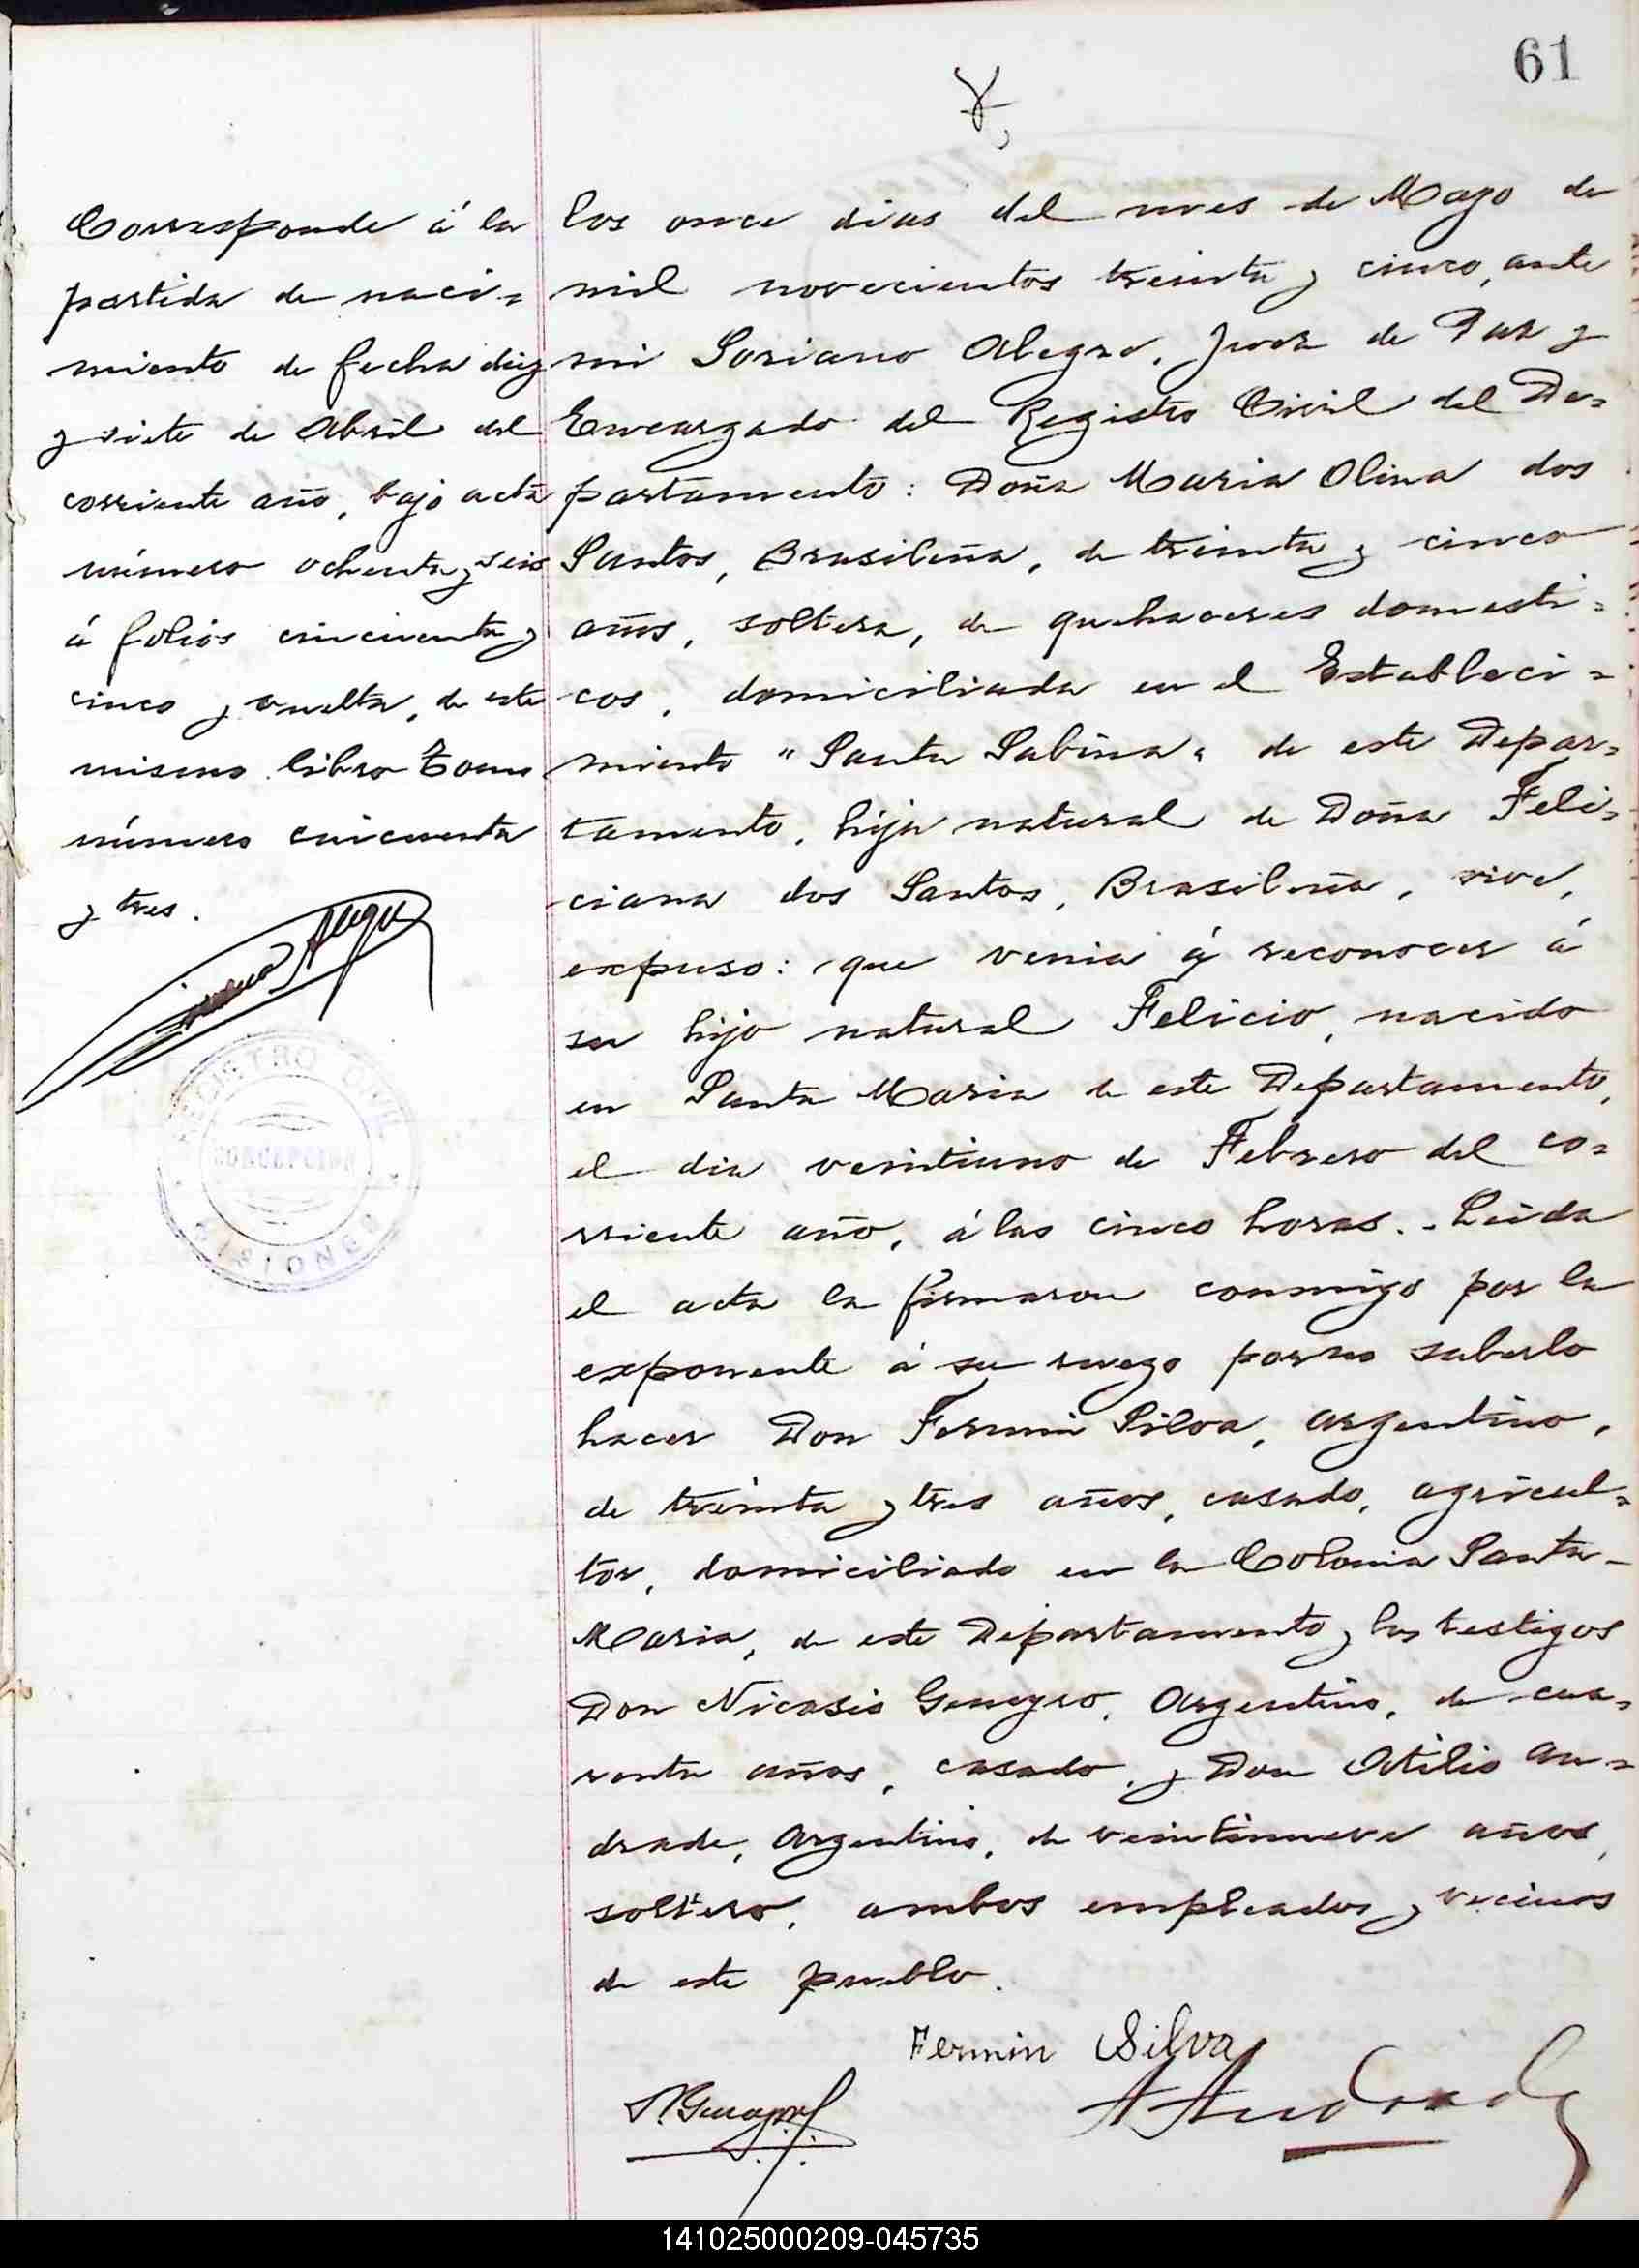 61
Corresponde á la
partida de naci=
miento de fecha diez
y siete de Abril del
corriente año, bajo acta
número ochenta y seis
á folios cincuenta y
cinco y vuelta, de este
mismo libro Tomo
número cincuenta
y tres.
REGISTRO CIVIL
CONCEPCION
MISIONES
los once dias del mes de Mayo de
mil novecientos treinta y cinco, ante
mi Soriano Alegre, Juez de Paz y
Encargado del Registro Civil del De=
partamento: Doña Maria Olina dos
Santos, Brasileña, de treinta y cinco
años, soltera, de quehaceres domesti=
cos, domiciliada en el Estableci=
miento "Santa Sabina" de este Depar=
tamento, hija natural de Doña Feli=
ciana dos Santos, Brasileña, vive,
expuso: que venia á reconocer á
su hijo natural Felicio, nacido
en Santa Maria de este Departamento,
el dia veintiuno de Febrero del co=
rriente año, á las cinco horas.- Leida
el acta la firmaron conmigo por la
exponente á su ruego por no saberlo
hacer Don Fermin Silva, argentino,
de treinta y tres años, casado, agricul=
tor, domiciliado en la Colonia Santa-
Maria, de este Departamento y los testigos
Don Nicasio Argentino, de cua=
renta años, casado, y Don Atilio An=
drade, Argentino, de veintinueve años,
soltero, ambos empleados y vecinos
de este pueblo.
Fermin Silva
A Andrade
141025000209-045735